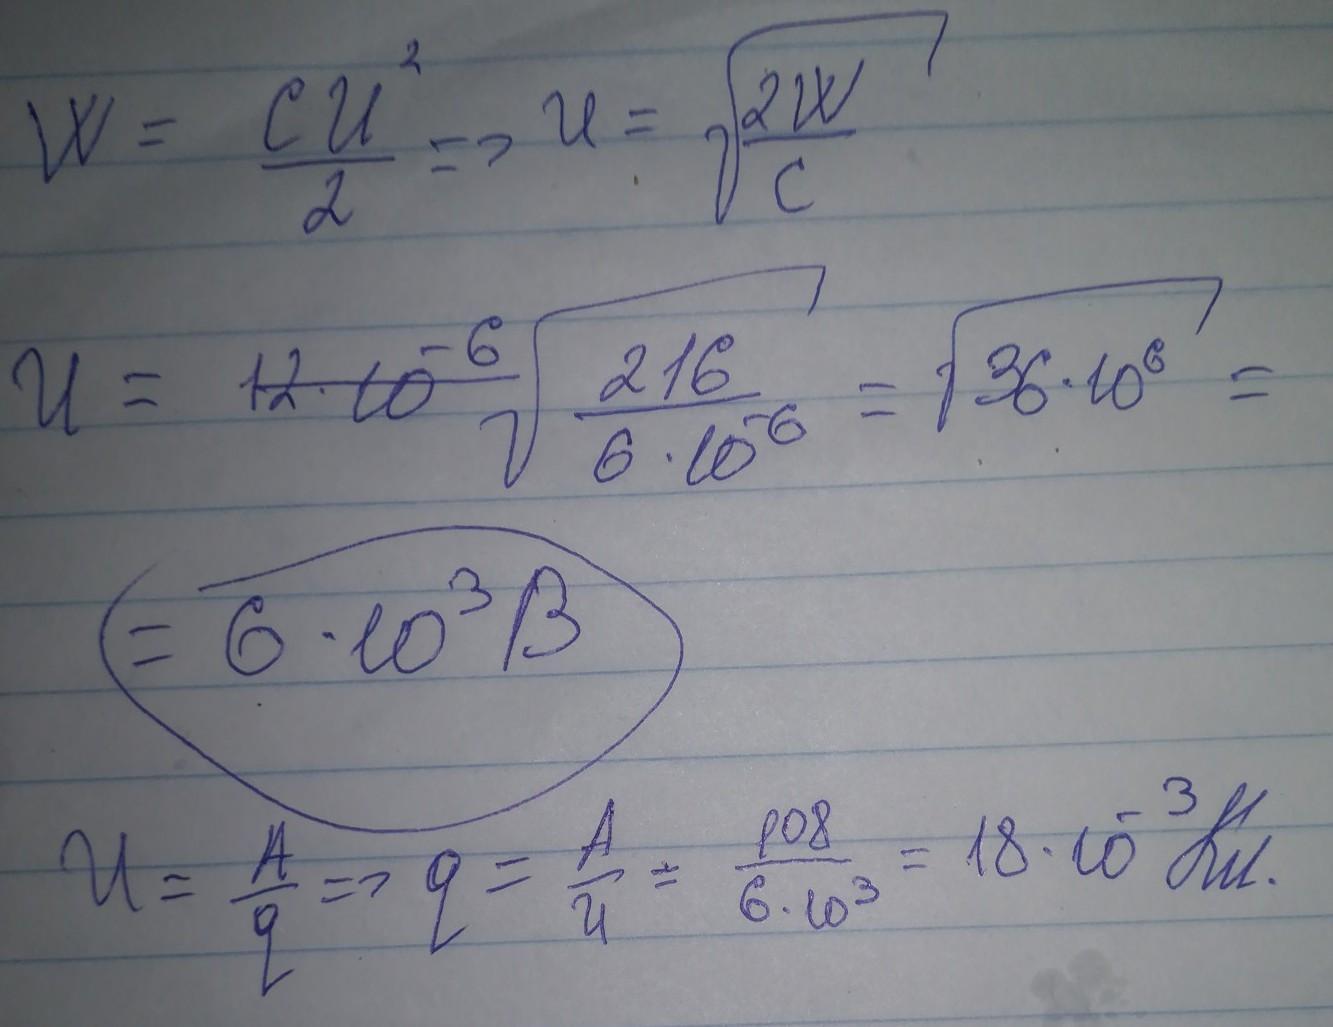 W = CU²/2 => U = √(2W/C)
U = 12·10⁻⁶ √(216/(6·10⁻⁶)) = √(36·10⁶) =
= 6·10³ В
U = A/q => q = A/U = 108/(6·10³) = 18·10⁻³ Кл.